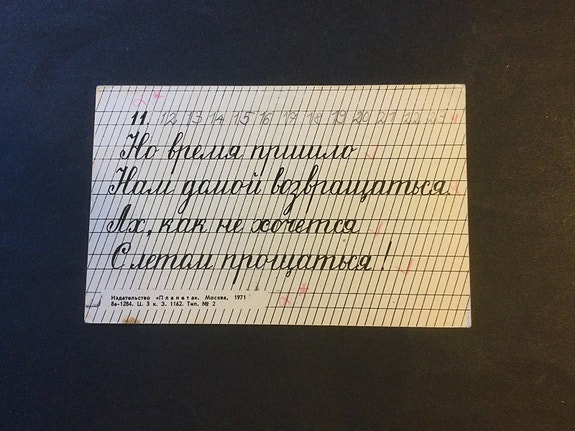 11 12 13 14 15 16 17 18 19 20 21 22 23
Но время пришло
Нам домой возвращаться.
Ах, как не хочется
С летом прощаться!
Издательство «Планета». Москва, 1971
8а-1284. Ц. 3 к. З. 1162. Тип. № 2